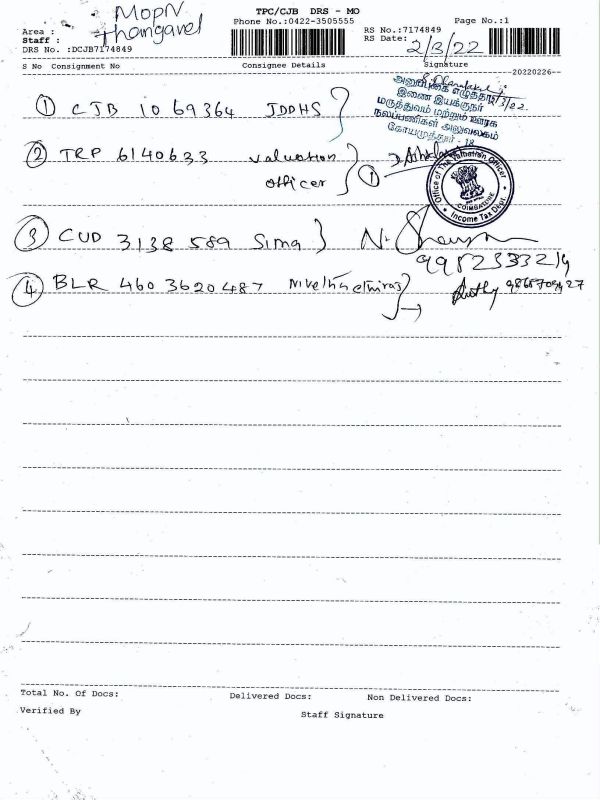 MOPN
Thangavel
TPC/CJB DRS - MO
Phone No.:0422-3505555
Page No.:1
Area :
Staff :
DRS No. :DCJB7174849
RS No.:7174849
RS Date:
2/3/22
S No Consignment No
Consignee Details
Signature
20220226
1 CJB 1069364 JDDHS
2/3/22.
இணை இயக்குநர்
மருத்துவம் மற்றும் ஊரக
நலப்பணிகள் அலுவலகம்
கோயமுத்தூர் - 18
2 TRP 6140633 Valuation
officer
1
Office of The Valuation Officer
COIMBATORE
Income Tax Dept.
3 CUD 3138589 Sima
4 BLR 4603620487
Total No. Of Docs:
Delivered Docs:
Non Delivered Docs:
Verified By
Staff Signature